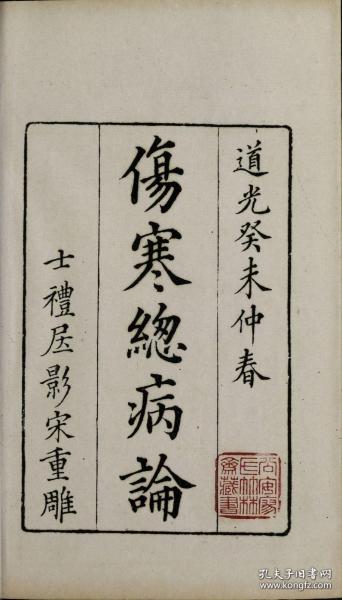 道光癸未仲春
傷寒緫病論
士禮居影宋重雕
孔夫子旧书网
www.kongfz.com